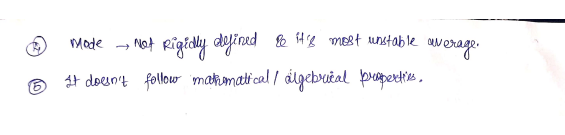 ④ Mode → Not Rigidly defined & it's most unstable average.
⑤ It doesn't follow mathematical / algebrical properties.